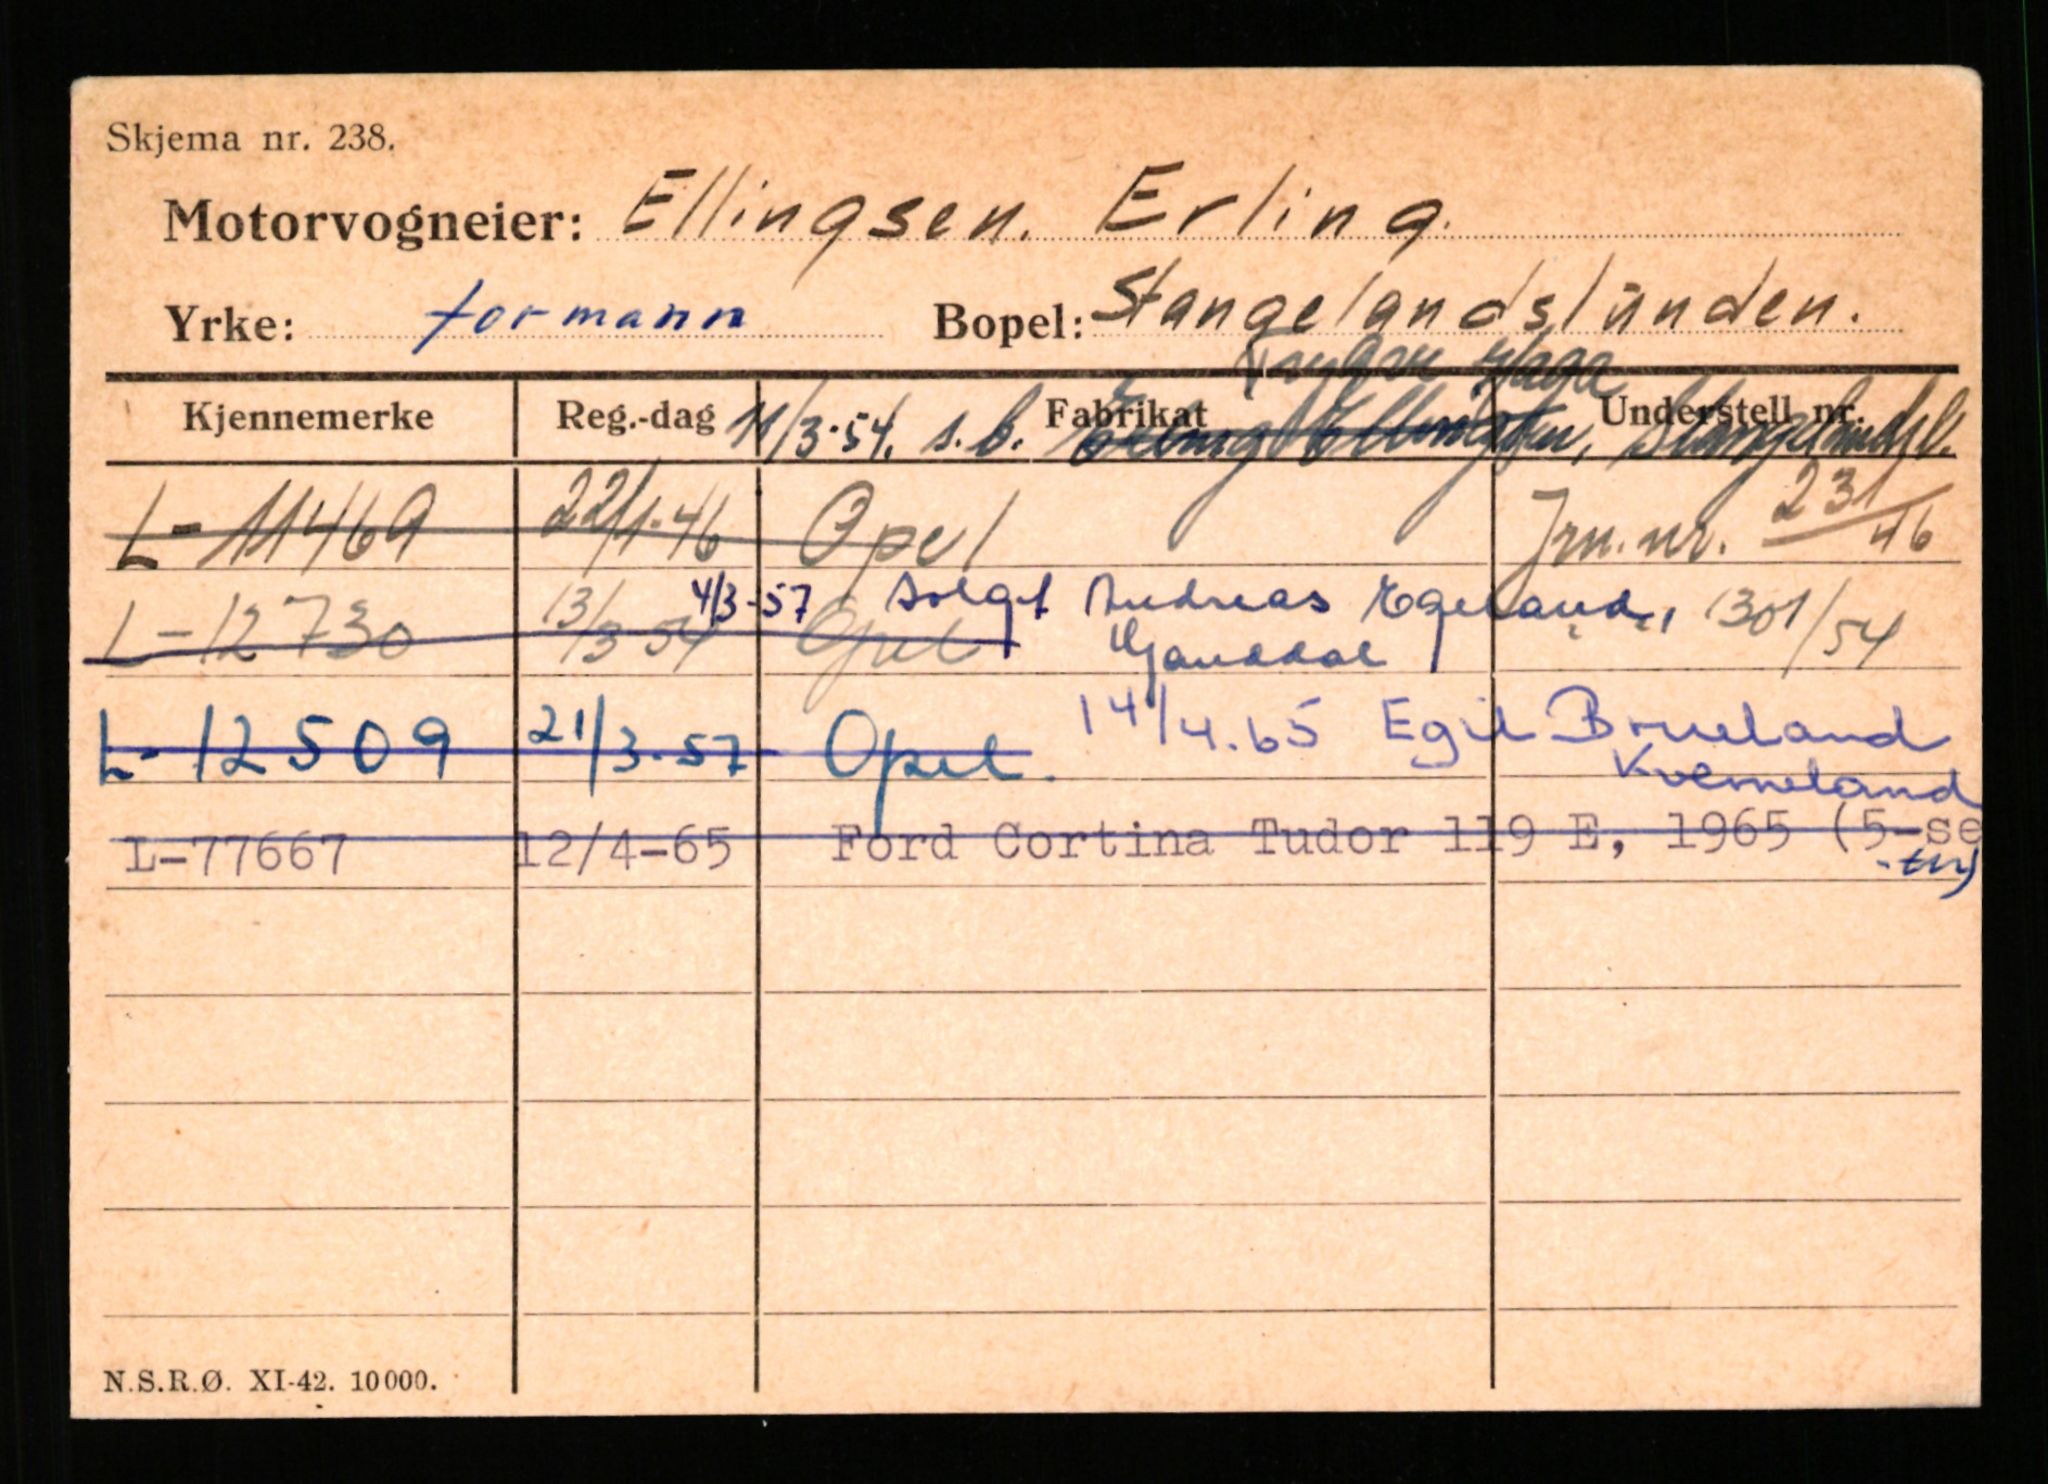 Skjema nr. 238.
Motorvogneier: Ellingsen. Erling.
Yrke: formann Bopel: Stangelandslunden.
Trygve Haga
Kjennemerke Reg.-dag Fabrikat Understell nr.
11/3-54. s.b. Erling Ellingsen, Stangelandsl.
L-11469 22/1-46 Opel Jrn. nr. 231/46
4/3-57 solgt Andreas Egeland,
L-12730 13/3 54 Opel Ganddal 1301/54
L-12509 21/3-57 Opel. 14/4.65 Egil Brueland
Kverneland
L-77667 12/4-65 Ford Cortina Tudor 119 E, 1965 (5-se
-ter)
N.S.R.Ø. XI-42. 10000.